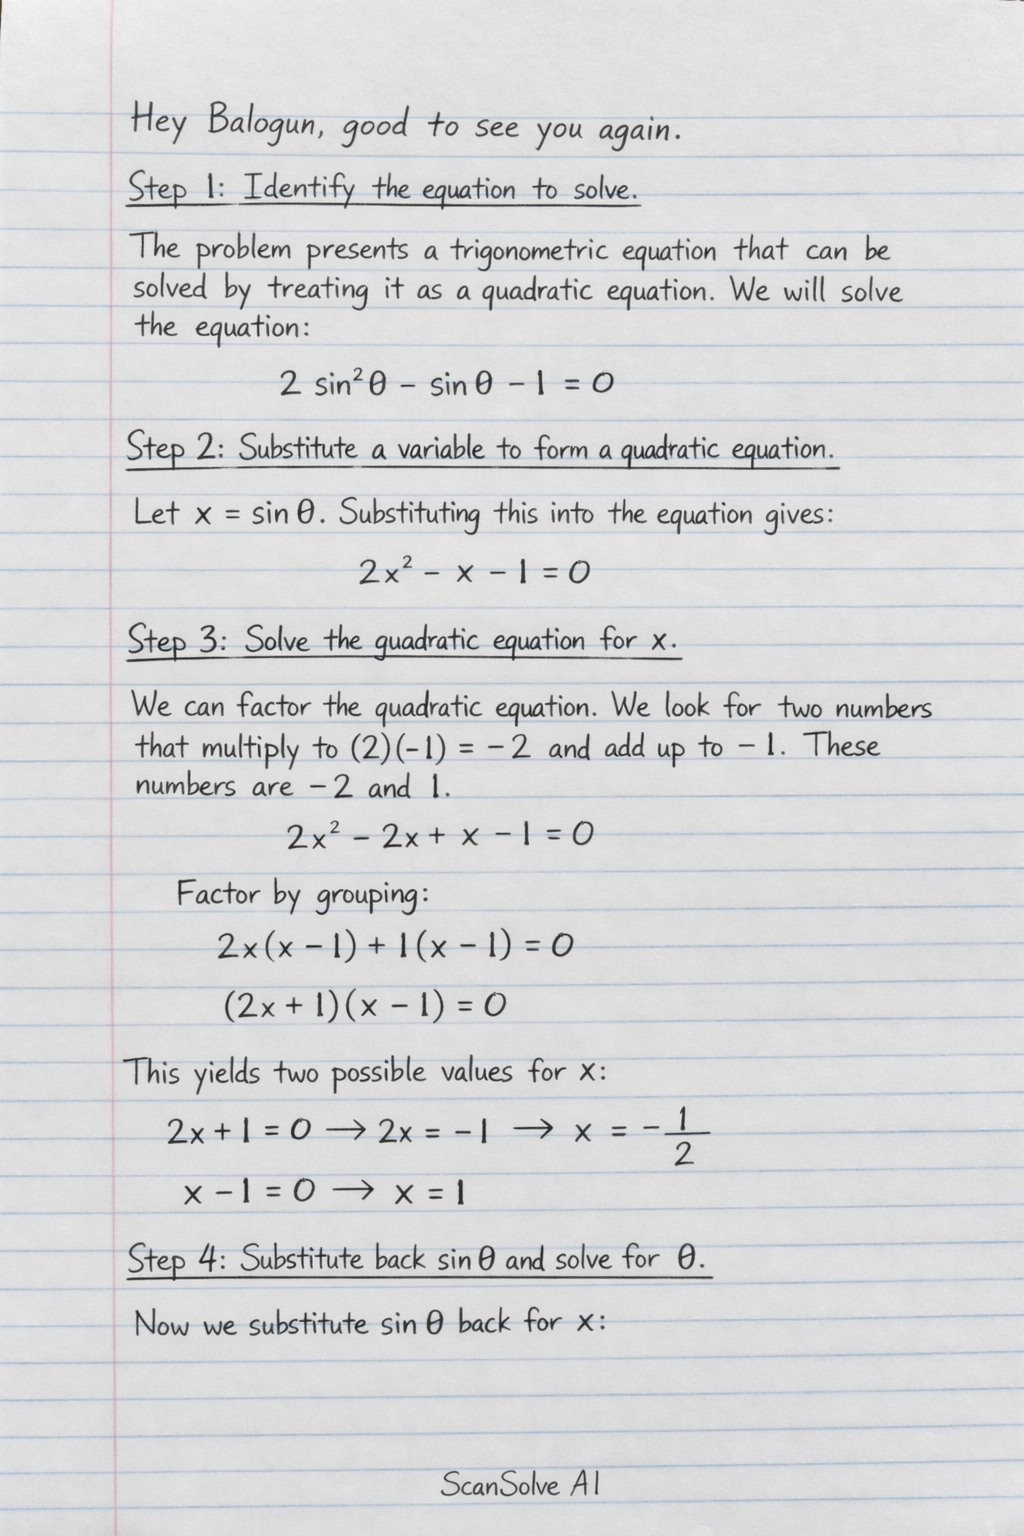 Hey Balogun, good to see you again.
Step 1: Identify the equation to solve.
The problem presents a trigonometric equation that can be
solved by treating it as a quadratic equation. We will solve
the equation:
2 sin²θ − sin θ − 1 = 0
Step 2: Substitute a variable to form a quadratic equation.
Let x = sin θ. Substituting this into the equation gives:
2x² − x − 1 = 0
Step 3: Solve the quadratic equation for x.
We can factor the quadratic equation. We look for two numbers
that multiply to (2)(−1) = −2 and add up to −1. These
numbers are −2 and 1.
2x² − 2x + x − 1 = 0
Factor by grouping:
2x(x − 1) + 1(x − 1) = 0
(2x + 1)(x − 1) = 0
This yields two possible values for x:
2x + 1 = 0 → 2x = −1 → x = −1/2
x − 1 = 0 → x = 1
Step 4: Substitute back sin θ and solve for θ.
Now we substitute sin θ back for x:
ScanSolve AI